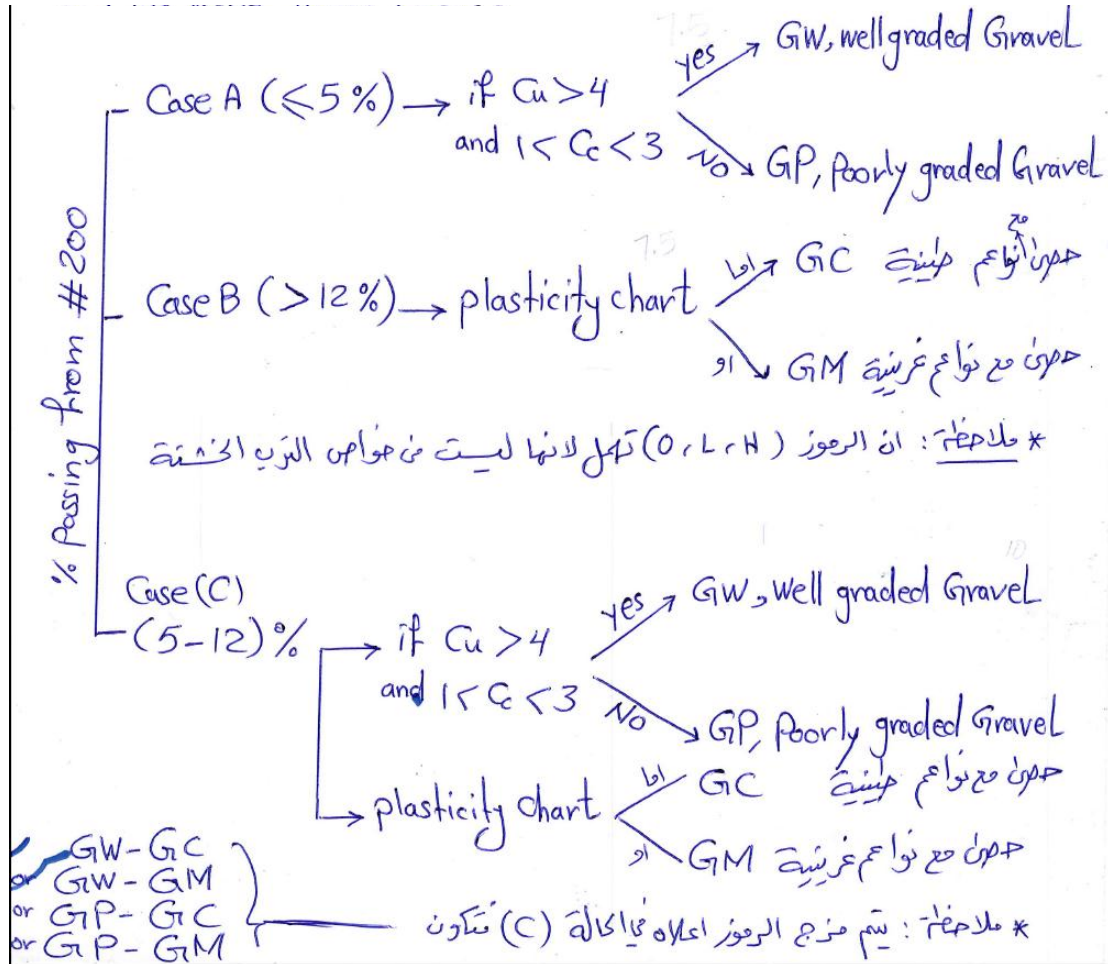 GW, well graded Gravel
yes
Case A (≤5%) → if Cu>4
and 1< Cc <3
No
GP, Poorly graded Gravel
% Passing from #200
7.5
Case B (>12%) → plasticity chart
اما GC حصى مع نواعم طينية
او GM حصى مع نواعم غرينية
* ملاحظة : ان الرموز (O, L, H) تهمل لانها ليست من خواص الترب الخشنة
Case (C)
(5-12)%
yes
GW, Well graded Gravel
if Cu >4
and 1< Cc <3
No
GP, Poorly graded Gravel
plasticity chart
اما GC حصى مع نواعم طينية
او GM حصى مع نواعم غرينية
GW-GC
or GW-GM
or GP-GC
or GP-GM
* ملاحظة : يتم مزج الرموز اعلاه في الحالة (C) فتكون